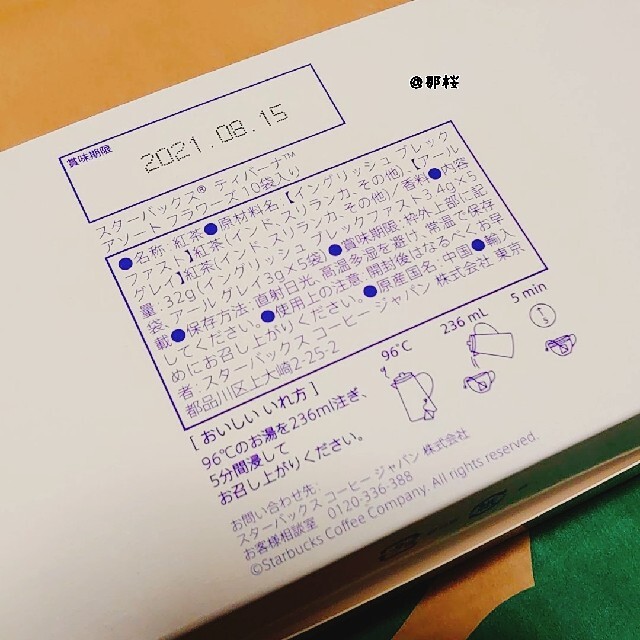 @那桜
賞味期限
2021.08.15
スターバックス® ティバーナ™
アソート フラワーズ 10袋入り
●名称: 紅茶●原材料名:【イングリッシュ ブレック
ファスト】紅茶(インド、スリランカ、その他)【アール
グレイ】紅茶(インド、スリランカ、その他)/香料●内容
量: 32g(イングリッシュ ブレックファスト3.4g×5
袋、アール グレイ3g×5袋)●賞味期限: 枠外上部に記
載●保存方法: 直射日光、高温多湿を避け、常温で保存
してください。●使用上の注意: 開封後はなるべくお早
めにお召し上がりください。●原産国名: 中国●輸入
者: スターバックス コーヒー ジャパン 株式会社 東京
都品川区上大崎2-25-2
96℃ 236 mL 5 min
[ おいしい いれ方 ]
96℃のお湯を236ml注ぎ、
5分間浸して
お召し上がりください。
お問い合わせ先:
スターバックス コーヒー ジャパン 株式会社
お客様相談室 0120-336-388
©Starbucks Coffee Company. All rights reserved.